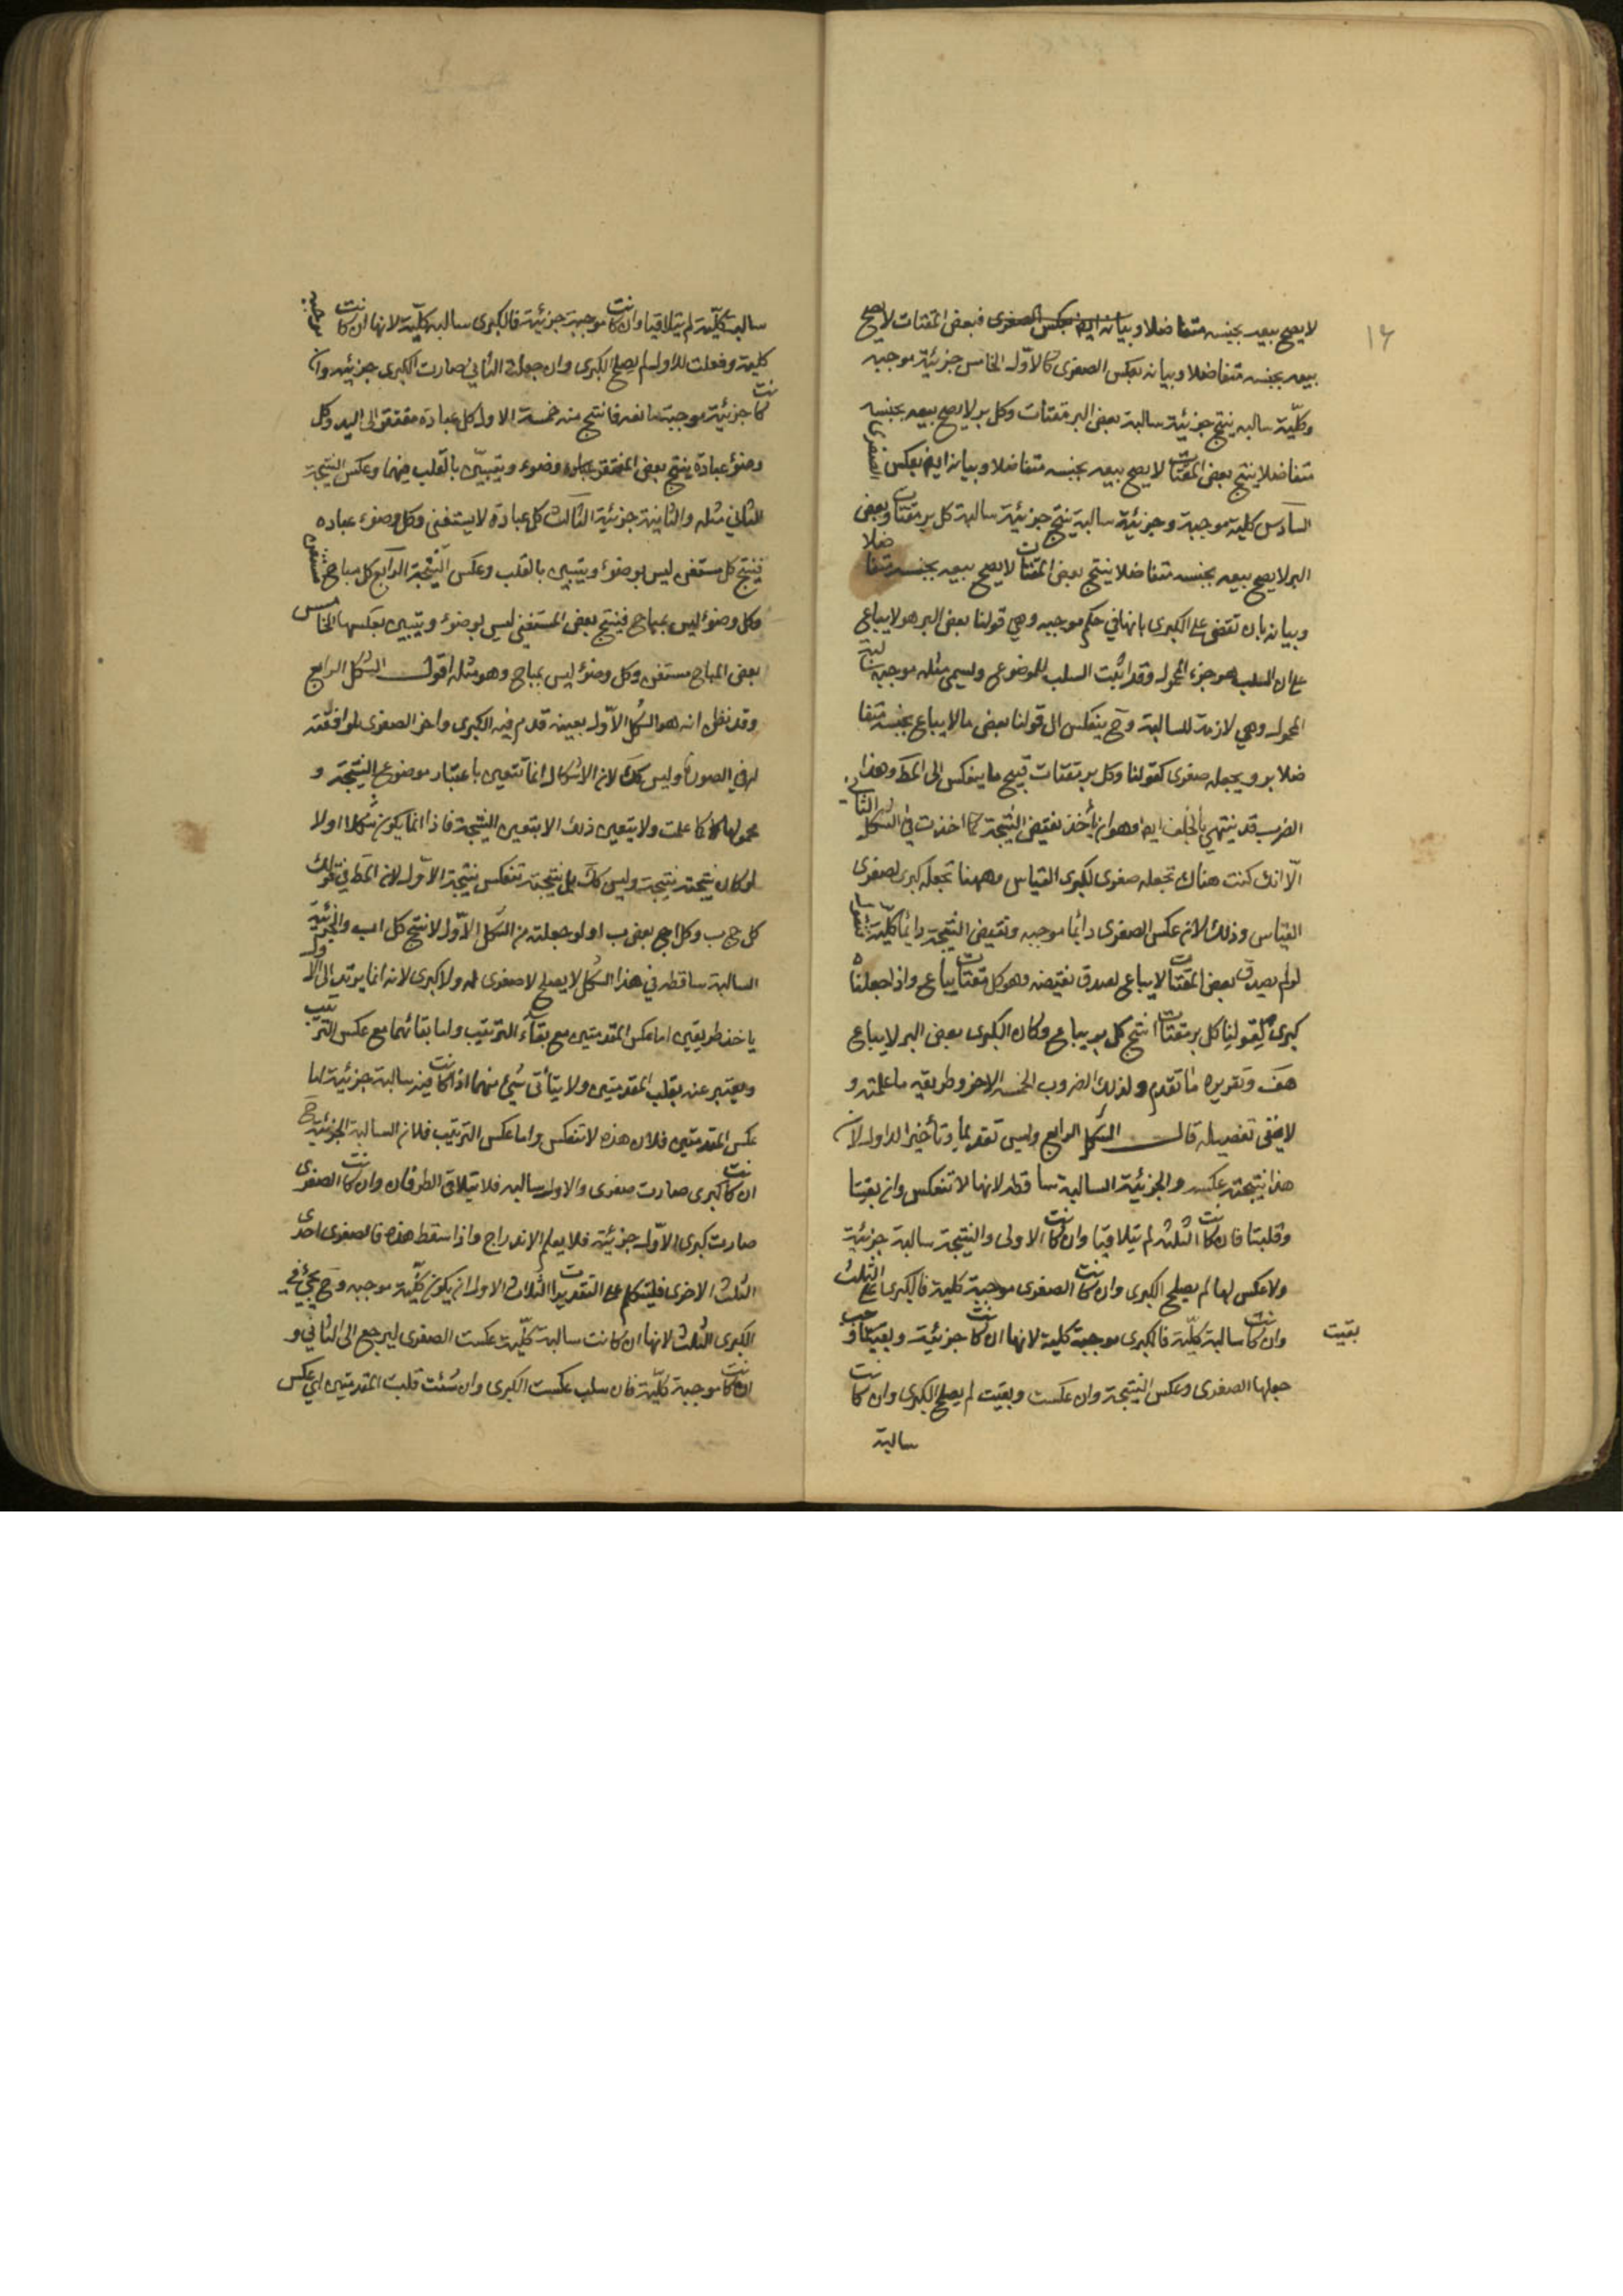 ١٤
لا يصح بيعه بجنسه متفاضلا وبيانه ايضا بعكس الصغرى فبعض المقتات لا يصح
بيعه بجنسه متفاضلا وبيانه بعكس الصغرى كالاول الخامس جزئية موجبه
وكلّية سالبه ينتج جزئية سالبة بعض البر مقتات وكل بر لا يصح بيعه بجنسه
متفاضلا ينتج بعض المقتات لا يصح بيعه بجنسه متفاضلا وبيانه ايضا بعكس الصغرى
السادس كلية موجبة وجزئية سالبة ينتج جزئية سالبة كل بر مقتات وبعض
البر لا يصح بيعه بجنسه متفاضلا ينتج بعض المقتات لا يصح بيعه بجنسه متفاضلا
وبيانه بان تقضى على الكبرى بانها في حكم موجبه وهي قولنا بعض البر هو لا يباع
على ان السلب هو جزء المحمول وقد اثبت السلب للموضوع ويسمى مثله موجبة سالبة
المحمول وهي لازمة للسالبة وح ينعكس الى قولنا بعض ما لا يباع بجنسه متفا
ضلا بر ويجعله صغرى كقولنا وكل بر مقتات فينتج ما ينعكس الى المط وهذا
الضرب قد ينتهي بالخلف ايضا وهو ان تأخذ نقيض النتيجة كما اخذت في الشكل الثاني
الّا انك كنت هناك تجعله صغرى لكبرى القياس وههنا تجعله كبرى لصغرى
القياس وذلك لان عكس الصغرى دائما موجبه ونقيض النتيجة دائما كلّية
لو لم يصدق بعض المقتات لا يباع لصدق نقيضه وهو كل مقتات يباع واذا جعلناه
كبرى لقولنا كل بر مقتات انتج كل بر يباع وكان الكبرى بعض البر لا يباع
هف وتقريره ما تقدم ولذلك الضروب الخمسه الاخر وطريقه ما علمته و
لا يخفى تفصيله قال الشكل الرابع وليس تقديما وتأخيرا للاول لان
هذا نتيجته عكسه والجزئية السالبة ساقطه لانها لا تنعكس وان بقيتا
وقلبتا فان كانت الثلثه لم يتلاقيا وان كانت الاولى والنتيجة سالبة جزئية
ولا عكس لها لم يصلح الكبرى وان كانت الصغرى موجبة كلية فالكبرى على الثلث
وان كانت سالبة كلّية فالكبرى موجبة كلية لانها ان كانت جزئية وبقيتا وجب
بقيت
جعلها الصغرى وعكس النتيجة وان عكست وبقيت لم يصلح الكبرى وان كانت
سالبة
سالبة كلّية لم يتلاقيا وان كانت موجبة جزئية فالكبرى سالبه كلّية لانها ان كانت موجبه
كلية وفعلت الاول لم يصلح الكبرى وان جعلت الثاني صارت الكبرى جزئيه وان
كانت جزئية موجبة فابعد فانتج منه خمسة الاول كل عبادة مفتقرة الى النيه وكل
وضوء عبادة ينتج بعض المفتقر وضوء ويتبيّن بالقلب فيهما وعكس النتيجة
الثاني مثله والثانية جزئية الثالث كل عبادة لا يستغنى وكل وضوء عباده
فينتج كل مستغن ليس بوضوء ويتبين بالقلب وعكس النتيجة الرابع كل مباح مستغن
وكل وضوء ليس بمباح فينتج بعض المستغني ليس بوضوء ويتبين بعكسهما الخامس
بعض المباح مستغن وكل وضوء ليس بمباح وهو مثله اقول الشكل الرابع
وقد نظن انه هو الشكل الاول بعينه قدم فيه الكبرى واخر الصغرى لموافقته
له في الصورة وليس كك لان الاشكال انما تتعين باعتبار موضوع النتيجة و
محمولها كما علمت ولا يتعين ذلك الا بتعين النتيجة فاذا انما يكون شكلا اولا
لو كان نتيجته نتيجته وليس كك بل نتيجته تنعكس نتيجة الاول لان المط في قولك
كل ج ب وكل ا ج بعض ب ا ولو جعلته من الشكل الاول لانتج كل ا ب والجزئية
السالبة ساقطه في هذا الشكل لا يصلح لا صغرى له ولا كبرى لانه انما يرتد الى الاول
باخذ طريقين اما عكس المقدمتين مع بقاء الترتيب واما بقائهما مع عكس الترتيب
ويعتبر عنه بقلب المقدمتين ولا يتأتى شيء منهما اذا كانت فيه سالبة جزئية اما
عكس المقدمتين فلان هذه لا تنعكس واما عكس الترتيب فلان السالبة الجزئية ح
ان كانت كبرى صارت صغرى والاول سالبه فلا يتلاقى الطرفان وان كانت الصغرى
صارت كبرى الاول جزئية فلا يعلم الاندراج واذا سقط هذه فالصغرى احدى
الثلث الاخرى فليتكلم على التقديرات الثلاث الاول ان يكون كلّية موجبه وح يجيء في
الكبرى الثلث لانها ان كانت سالبة كلّية عكست الصغرى ليرجع الى الثاني و
ان كانت موجبة كلّية فان سلب عكست الكبرى وان شئت قلبت المقدمتين اي عكس